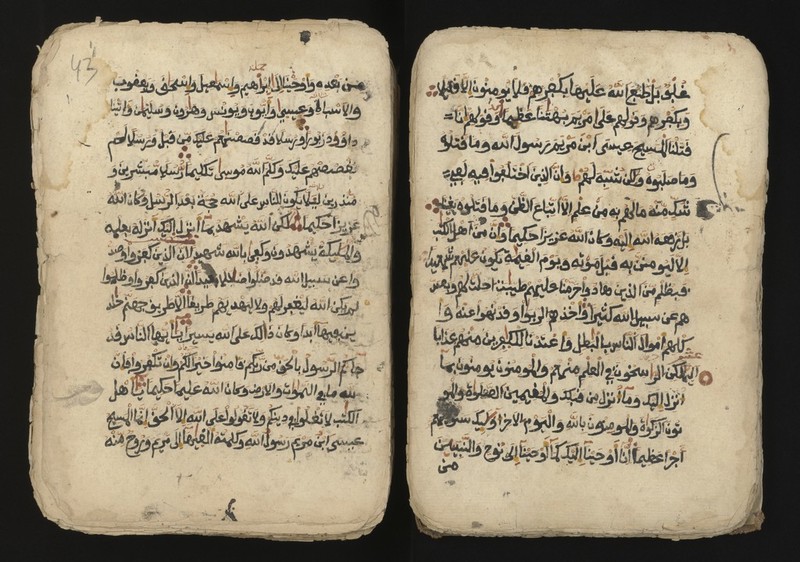 غلف بل طبع الله عليها بكفرهم فلا يومنون الا قليلا
وبكفرهم وقولهم على مريم بهتنا عظيما وقولهم انا
قتلنا المسيح عيسى ابن مريم رسول الله وما قتلوه
وما صلبوه ولكن شبه لهم وان الذين اختلفوا فيه لفي
شك منه ما لهم به من علم الا اتباع الظن وما قتلوه يقينا
بل رفعه الله اليه وكان الله عزيزا حكيما وان من اهل الكتب
الا ليومنن به قبل موته ويوم القيمة يكون عليهم شهيدا
فبظلم من الذين هادوا حرمنا عليهم طيبت احلت لهم وبصد
هم عن سبيل الله كثيرا واخذهم الربوا وقد نهوا عنه وا
كلهم امول الناس بالبطل واعتدنا للكفرين منهم عذابا
اليما لكن الرسخون في العلم منهم والمومنون يومنون بما
انزل اليك وما انزل من قبلك والمقيمين الصلوة والمو
تون الزكوة والمومنون بالله واليوم الاخر اوليك سنوتيهم
اجرا عظيما انا اوحينا اليك كما اوحينا الى نوح والنبيين
من
43
من بعده واوحينا الى ابرهيم واسمعيل واسحق ويعقوب
والاسباط وعيسى وايوب ويونس وهرون وسليمن واتينا
داوود زبورا ورسلا قد قصصنهم عليك من قبل ورسلا لم
نقصصهم عليك وكلم الله موسى تكليما رسلا مبشرين و
منذرين ليلا يكون للناس على الله حجة بعد الرسل وكان الله
عزيزا حكيما لكن الله يشهد بما انزل اليك انزله بعلمه
والمليكة يشهدون وكفى بالله شهيدا ان الذين كفروا وصد
وا عن سبيل الله قد ضلوا ضللا بعيدا ان الذين كفروا وظلموا
لم يكن الله ليغفر لهم ولا ليهديهم طريقا الا طريق جهنم خلد
ين فيها ابدا وكان ذالك على الله يسيرا يايها الناس قد
جاكم الرسول بالحق من ربكم فامنوا خيرا لكم وان تكفروا فان
لله ما في السموت والارض وكان الله عليما حكيما يا اهل
الكتب لا تغلوا في دينكم ولا تقولوا على الله الا الحق انما المسيح
عيسى ابن مريم رسول الله وكلمته القيها الى مريم وروح منه